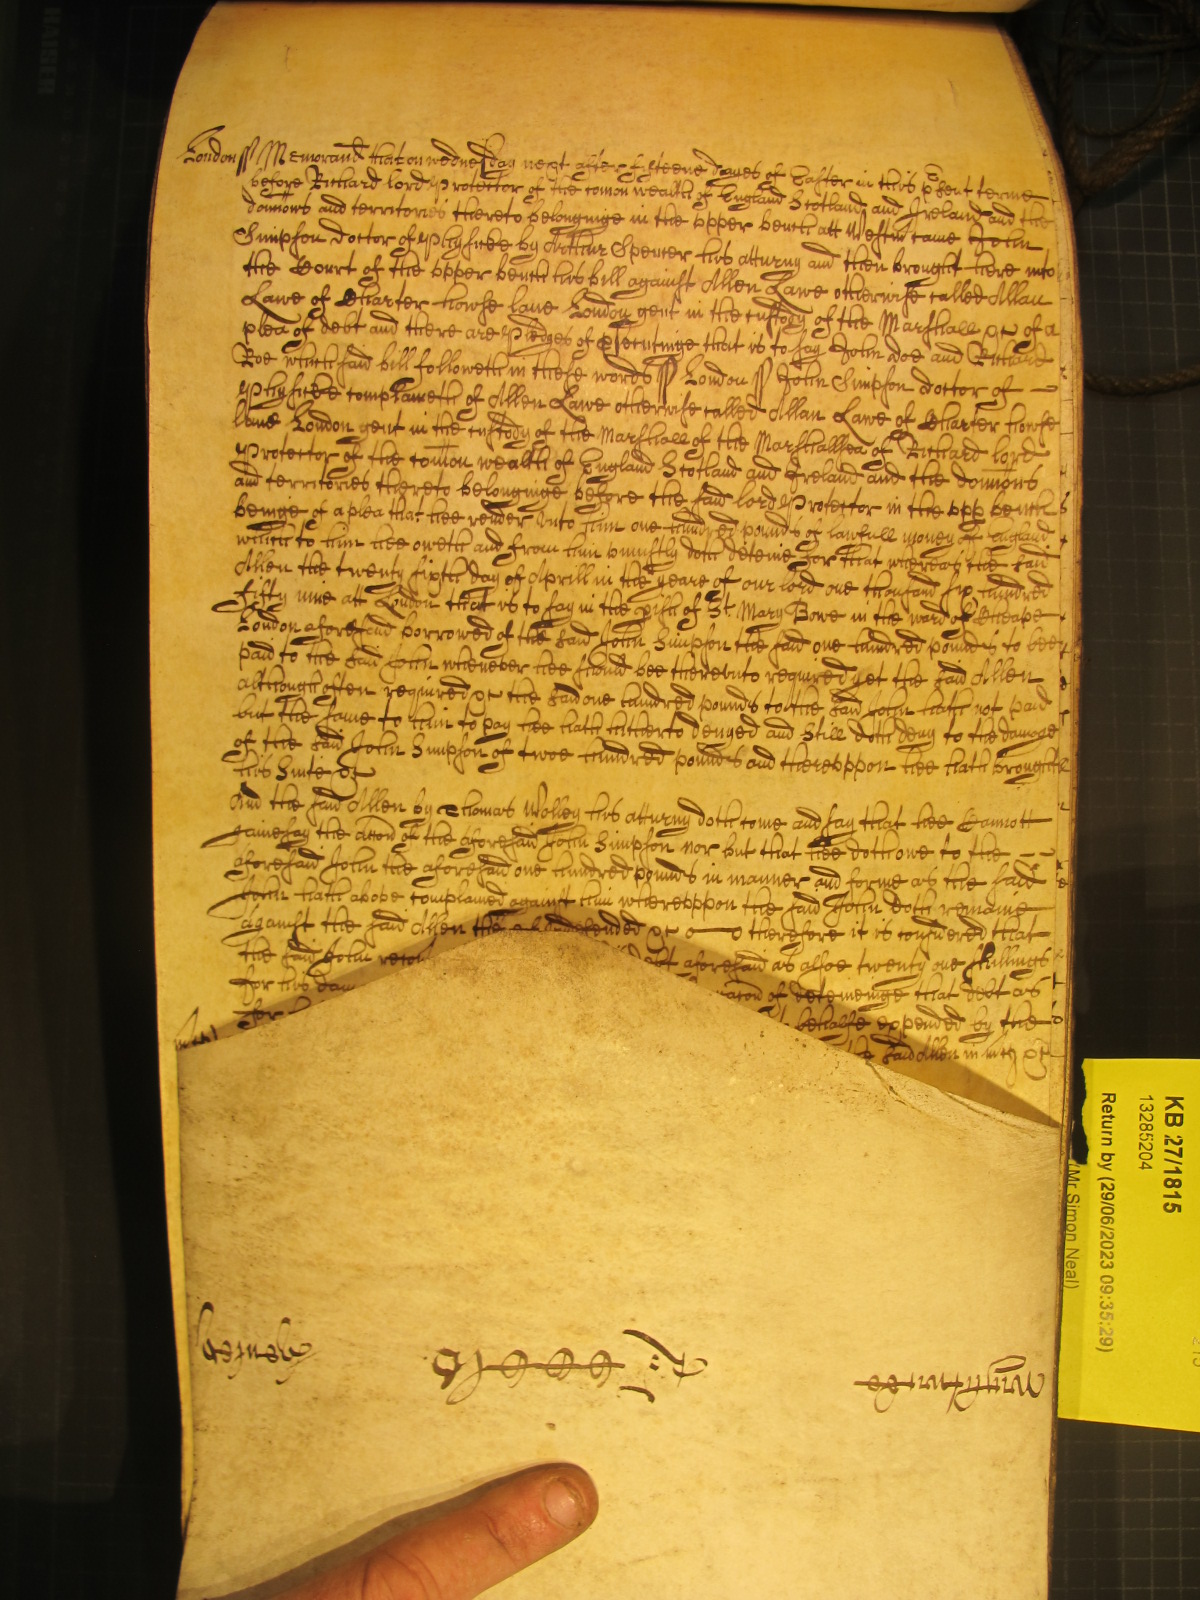 London ss Memorand that on wednesday next after fifteene dayes of Easter in this p'sent terme
before Richard lord Protector of the com̄on wealth of England Scotland and Ireland and the
domions and territories thereto belonginge in the vpper bench att Westm̄ came John
Simpson doctor of Physicke by Arthur Spencer his atturny and then brought here into
the Court of the vpper bench his bill against Allen Lawe otherwise called Allan
Lawe of Charter howse lane London gent in the custody of the Marshall &c of a
plea of debt and there are Pledges of P'secutinge that is to say John doe and Richard
Roe which said bill followeth in these words ss London ss John Simpson doctor of
Physicke complaineth of Allen Lawe otherwise called Allan Lawe of Charter howse
lane London gent in the custody of the Marshall of the Marshallsea of Richard lord
Protector of the com̄on wealth of England Scotland and Ireland and the domions
and territories thereto belonginge before the said lord Protector in the vpp bench
beinge of a plea that hee render vnto him one hundred pounds of lawfull money of England
which to him hee oweth and from him vniustly doth deteine for that whereas the said
Allen the twenty sixth day of Aprill in the yeare of our lord one thousand six hundred
fifty nine att London that is to say in the p'ish of St. Mary Bowe in the ward of Cheape
London aforesaid borrowed of the said John Simpson the said one hundred pounds to bee
paid to the said John whenever hee should bee therevnto required yet the said Allen
although often required &c the said one hundred pounds to the said John hath not paid
but the same to him to pay hee hath hitherto denyed and still doth deny to the damage
of the said John Simpson of twoe hundred pounds and therevppon hee hath brought
his suite &c
And the said Allen by Thomas Wolley his atturny doth come and say that hee Cannott
gainesay the accon̄ of the aforesaid John Simpson nor but that hee doth owe to the
aforesaid John the aforesaid one hundred pounds in manner and forme as the said
John hath above complained against him wherevppon the said John doth remaine
against the said Allen vndefended &c therefore it is considered that
the said John debt aforesaid as alsoe twenty one shillings
for his of deteineinge that debt as
for behalfe expended by the
said Allen in mcy &c
KB 27/1815
13285204
Return by (29/06/2023 09:35:29)
(Mr Simon Neal)